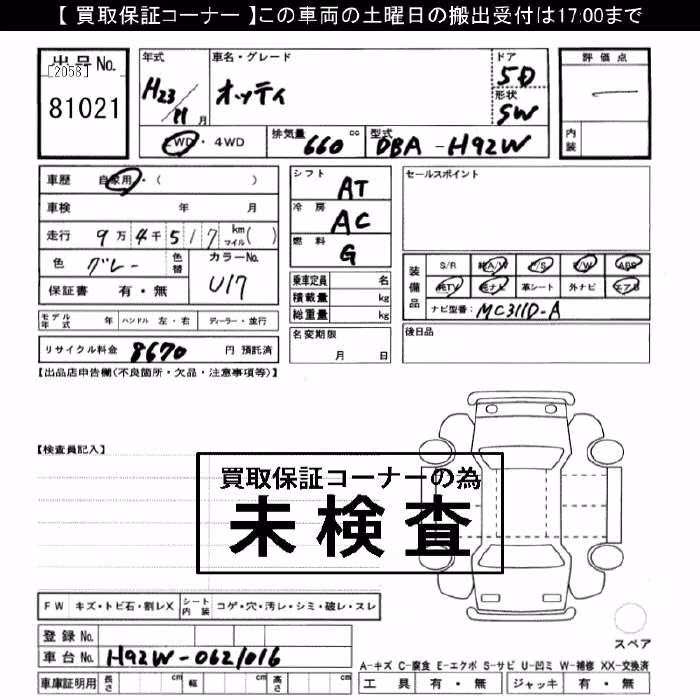 【 買取保証コーナー 】この車両の土曜日の搬出受付は17:00まで
出品No. [2058] 81021
年式 H23 11 月
車名・グレード オッティ
ドア 5D
形状 SW
評価点
内装
2WD・4WD
排気量 660 cc
型式 DBA-H92W
車歴 自家用・( )
車検 年 月
走行 9万4千517 km マイル( )
色 グレー 色替
カラーNo. U17
保証書 有・無
シフト AT
冷房 AC
燃料 G
乗車定員 名
積載量 kg
総重量 kg
セールスポイント
装備品 S/R 純A/W P/S P/W ABS
純TV 純ナビ 革シート 外ナビ エアB
ナビ型番: MC311D-A
モデル年式 年 ハンドル 左・右 ディーラー・並行
名変期限 月 日
後日品
リサイクル料金 8670 円 預託済
【出品店申告欄(不良箇所・欠品・注意事項等)】
【検査員記入】
買取保証コーナーの為
未検査
FW キズ・トビ石・割レX シート内装 コゲ・穴・汚レ・シミ・破レ・スレ
スペア
登録No.
車台No. H92W-0621016
車庫証明用 長さ cm 幅 cm 高さ cm
A-キズ C-腐食 E-エクボ S-サビ U-凹ミ W-補修 XX-交換済
工具 有・無 ジャッキ 有・無